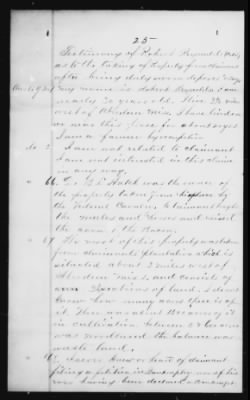 25
Testimony of Robert Reynolds
as to the taking of property from claimant
after being duly sworn deposes & says
my name is Robert Reynolds I am
nearly 30 years old. I live 2½ miles
west of Aberdeen Miss, I have lived on
or near this place for about years
I am a farmer by occupation
No 2 I am not related to claimant
I am not interested in this claim
in any way.
66 was the owner of
the property taken from
the Federal Cavalry. Claimant bought
the mules and horses and raised
the corn & the Bacon.
67 The most of the property was taken
from claimants plantation which is
situated about 3 miles west of
Aberdeen Miss, and consists of
over sections of land, I do not
know how many acres there is of
it. There was about acres of it
in cultivation between
was woodland the balance was
waste land.
I never knew or heard of claimant
filing a petition in bankruptcy nor of his
ever having been declared a bankrupt.